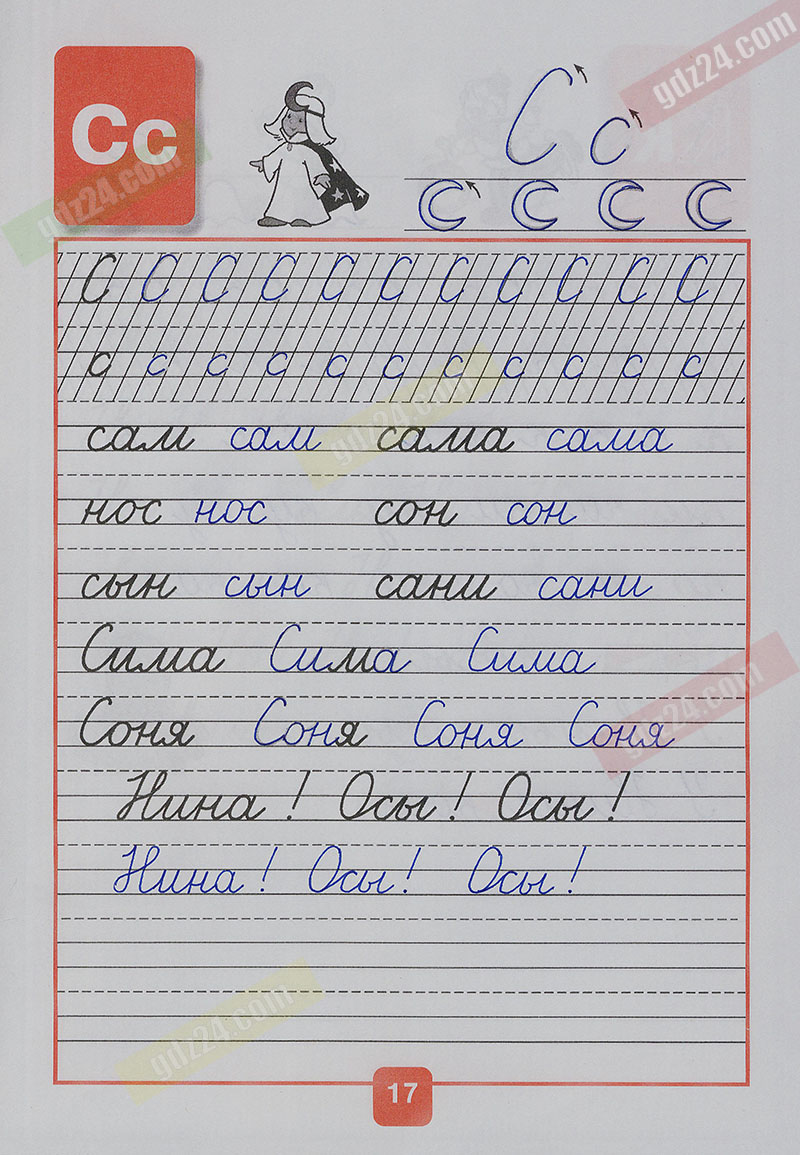 Сс
С с
gdz24.com
С С С С
gdz24.com
С С С С С С С С С С С
с с с с с с с с с с с
gdz24.com
сам сам сама сама
нос нос сон сон
сын сын сани сани
Сима Сима Сима
gdz24.com
Соня Соня Соня Соня
Нина! Осы! Осы!
Нина! Осы! Осы!
gdz24.com
17